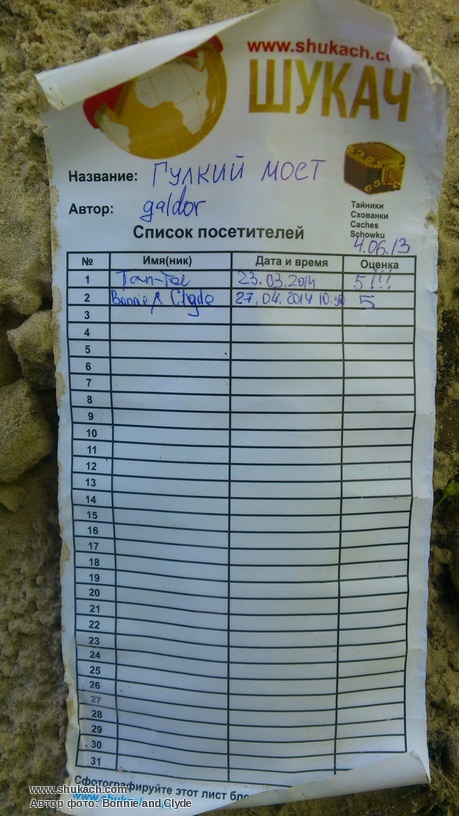 www.shukach.c
ШУКАЧ
Название: Гулкий мост
Автор: galdor
Тайники
Схованки
Caches
Schowku
Список посетителей
4.06.13
№ Имя(ник) Дата и время Оценка
1 Tan-Tol 23.03.2014 5!!!
2 Bonnie & Clyde 27.04.2014 5
3
4
5
6
7
8
9
10
11
12
13
14
15
16
17
18
19
20
21
22
23
24
25
26
27
28
29
30
31
Сфотографируйте этот лист
www.shukach.com
Автор фото: Bonnie and Clyde